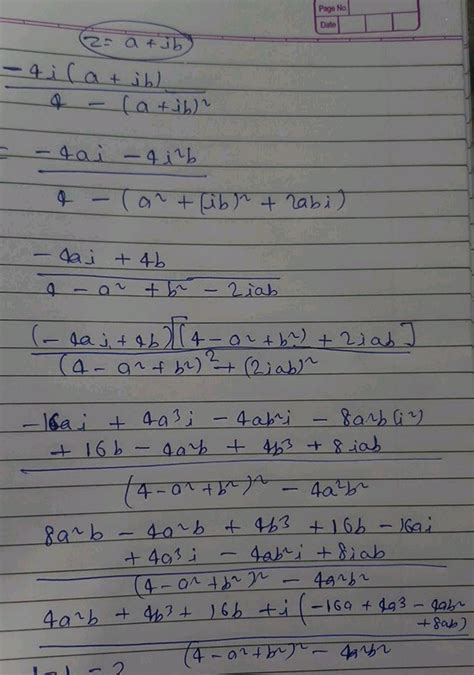 Page No.
Date
z = a + ib
-4i(a + ib)
4 - (a+ib)²
= -4ai - 4i²b
4 - (a² + (ib)² + 2abi)
-4ai + 4b
4 - a² + b² - 2iab
(-4ai + 4b)[(4 - a² + b²) + 2iab]
(4 - a² + b²)² + (2iab)²
-16ai + 4a³i - 4ab²i - 8a²b(i²)
+ 16b - 4a²b + 4b³ + 8iab
(4-a²+b²)² - 4a²b²
8a²b - 4a²b + 4b³ + 16b - 16ai
+ 4a³i - 4ab²i + 8iab
(4-a²+b²)² - 4a²b²
4a²b + 4b³ + 16b + i(-16a + 4a³ - 4ab²
+ 8ab)
(4-a²+b²)² - 4a²b²